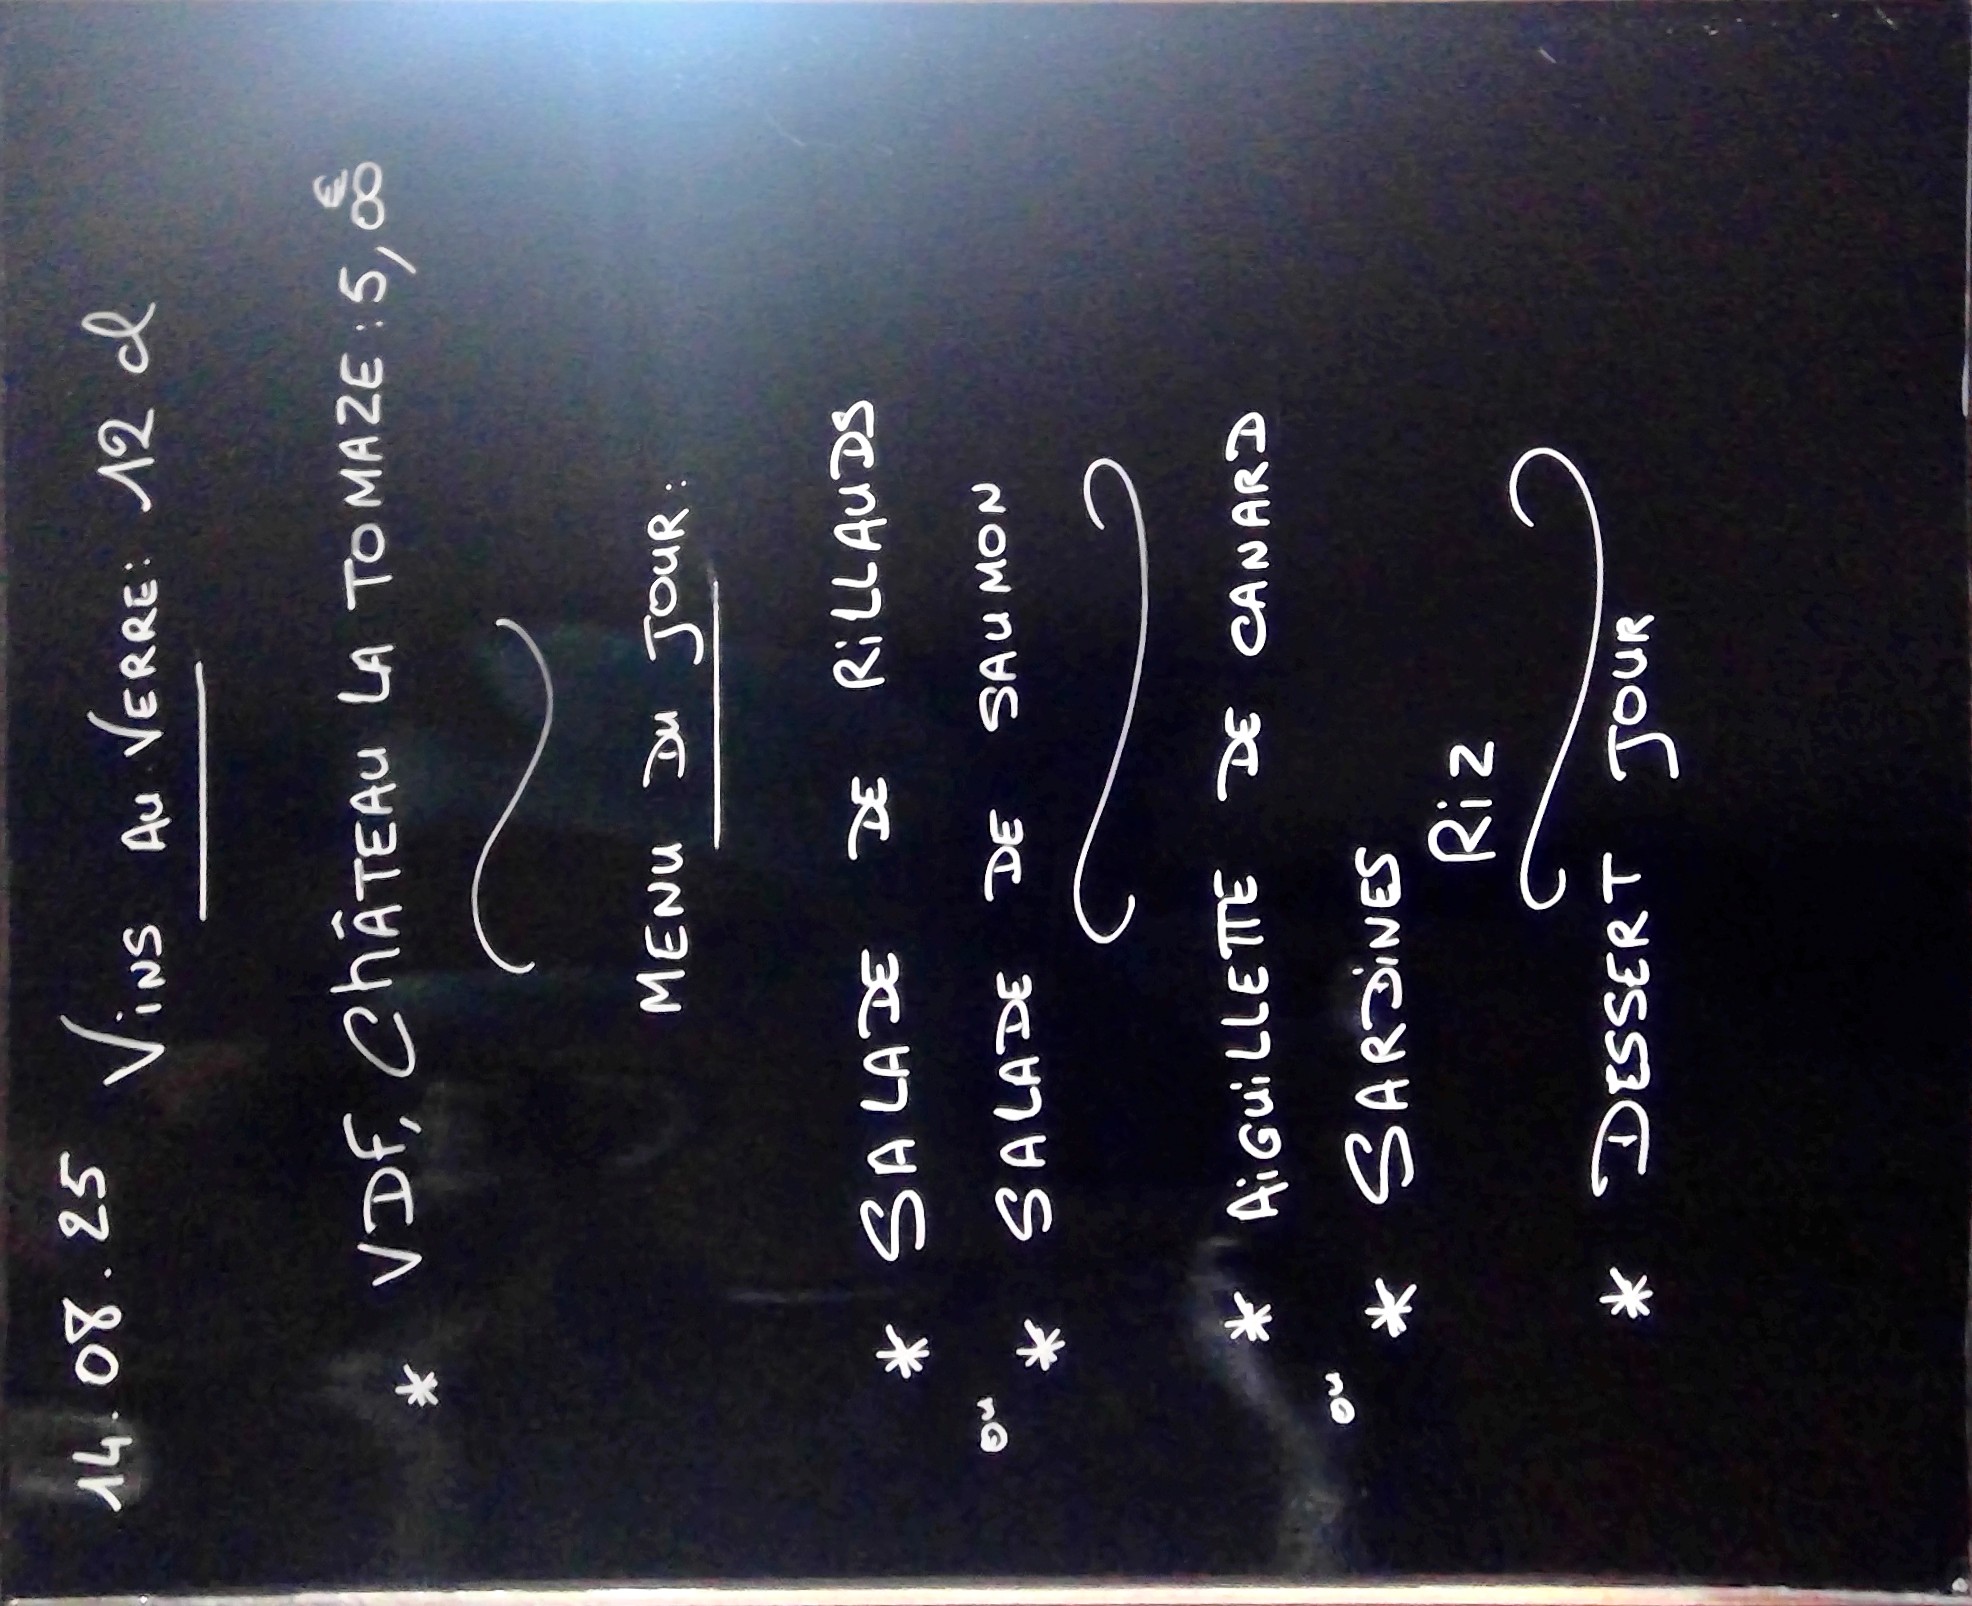 14.08.25 Vins Au Verre: 12 cl
* VDF, Château La Tomaze: 5,00€
Menu Du Jour:
* Salade de Rillauds
ou
* Salade de Saumon
* Aiguillette de Canard
ou
* Sardines
Riz
* Dessert Jour